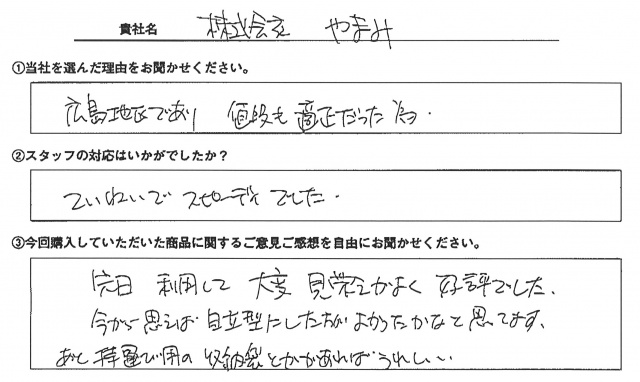 貴社名 株式会社 やまみ
①当社を選んだ理由をお聞かせください。
広島地区であり 値段も適正だった為.
②スタッフの対応はいかがでしたか?
ていねいで スピーディ でした.
③今回購入していただいた商品に関するご意見ご感想を自由にお聞かせください。
先日 利用して 大変 見栄えがよく 好評でした、
今から思えば 自立型にした方がよかったかなと思てます、
あと 持運び用の 収納袋とかがあればうれしい..